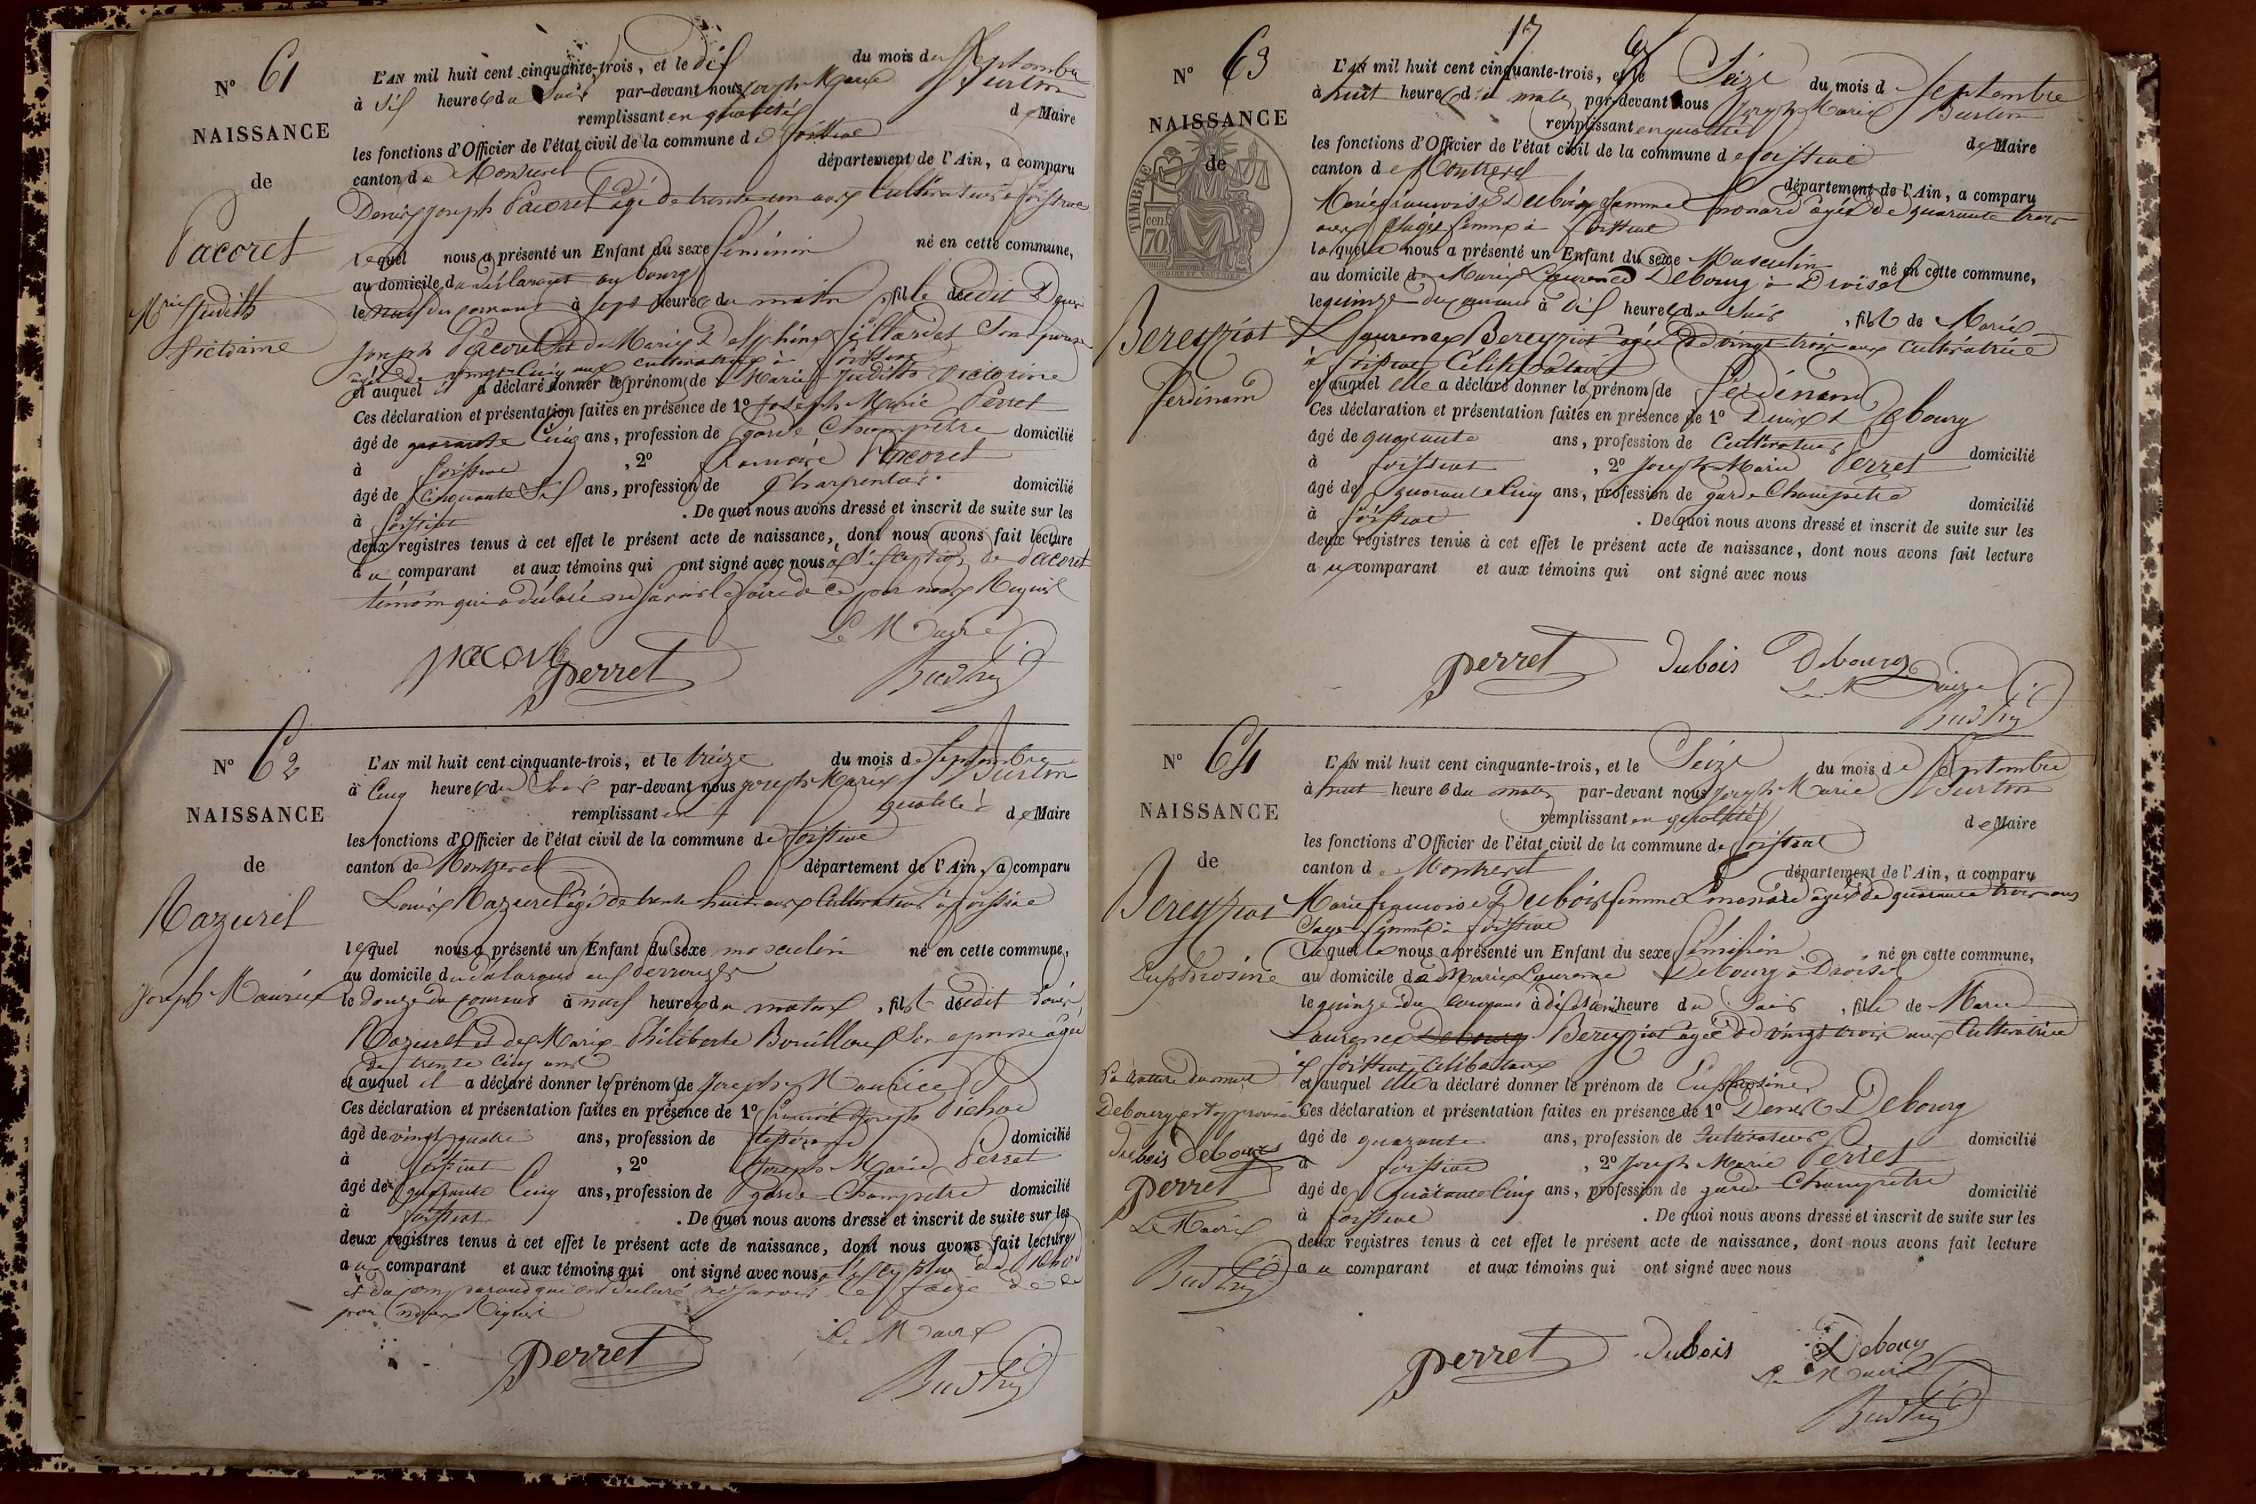 N° 61
NAISSANCE
de
Pacoret
Mie Judith
Victorine
L'AN mil huit cent cinquante-trois, et le dix du mois de Septembre
à Six heure du Soir par-devant nous Joseph Marie Burtin
remplissant en qualité de Maire
les fonctions d'Officier de l'état civil de la commune de foissiat
canton de Montrevel département de l'Ain, a comparu
Denis Joseph Pacoret âgé de trente un ans Cultivateur à foissiat
lequel nous a présenté un Enfant du sexe féminin né en cette commune,
au domicile du déclarant au bourg
le neuf du courant à sept heure du matin, fille dudit Denis
Joseph Pacoret et de Marie Delphine Son épouse
âgée de vingt cinq ans cultivatrice à foissiat
et auquel il a déclaré donner le prénom de Marie Judith Victorine
Ces déclaration et présentation faites en présence de 1° Joseph Marie Perret
âgé de quarante Cinq ans, profession de garde Champêtre domicilié
à foissiat, 2° Pacoret
âgé de Cinquante Six ans, profession de Charpentier domicilié
à foissiat. De quoi nous avons dressé et inscrit de suite sur les
deux registres tenus à cet effet le présent acte de naissance, dont nous avons fait lecture
au comparant et aux témoins qui ont signé avec nous à l'éxception de Pacoret
témoin qui a déclaré ne savoir le faire de ce par nous Requis
Le Maire
pacoret perret Burtin
N° 62
NAISSANCE
de
Mazuret
Joseph Maurice
L'AN mil huit cent cinquante-trois, et le treize du mois de Septembre
à Cinq heure du Soir par-devant nous Joseph Marie Burtin
remplissant en qualité de Maire
les fonctions d'Officier de l'état civil de la commune de foissiat
canton de Montrevel département de l'Ain, a comparu
Louis Mazuret âgé de trente huit ans Cultivateur à foissiat
lequel nous a présenté un Enfant du sexe masculin né en cette commune,
au domicile du déclarant aux
le douze du courant à neuf heure du matin, fils dudit Louis
Mazuret et de Marie Philiberte Bouilloux Son épouse âgée
de trente cinq ans
et auquel il a déclaré donner le prénom de Joseph Maurice
Ces déclaration et présentation faites en présence de 1° Joseph Pichod
âgé de vingt quatre ans, profession de domicilié
à foissiat, 2° Joseph Marie Perret
âgé de quarante Cinq ans, profession de garde-Champêtre domicilié
à foissiat. De quoi nous avons dressé et inscrit de suite sur les
deux registres tenus à cet effet le présent acte de naissance, dont nous avons fait lecture
au comparant et aux témoins qui ont signé avec nous à l'éxception de Pichod
et du comparant qui ont déclaré ne savoir le faire de ce
par nous Requis
Le Maire
perret Burtin
17
N° 63
NAISSANCE
de
TIMBRE
cen 70
Bereyziat
ferdinand
L'AN mil huit cent cinquante-trois, et le Seize du mois de Septembre
à huit heure du matin par-devant nous Joseph Marie Burtin
remplissant en qualité de Maire
les fonctions d'Officier de l'état civil de la commune de foissiat
canton de Montrevel département de l'Ain, a comparu
Marie françoise Dubois femme âgée de quarante trois
ans Sage femme à foissiat
laquelle nous a présenté un Enfant du sexe Masculin né en cette commune,
au domicile de Marie Laurence Debourg à
le quinze du courant à dix heure du Soir, fils de Marie
Laurence Bereyziat âgée de vingt trois ans Cultivatrice
à foissiat Célibataire
et auquel elle a déclaré donner le prénom de ferdinand
Ces déclaration et présentation faites en présence de 1° Denis Debourg
âgé de quarante ans, profession de Cultivateur domicilié
à foissiat, 2° Joseph Marie Perret
âgé de quarante Cinq ans, profession de garde Champêtre domicilié
à foissiat. De quoi nous avons dressé et inscrit de suite sur les
deux registres tenus à cet effet le présent acte de naissance, dont nous avons fait lecture
au comparant et aux témoins qui ont signé avec nous
perret Dubois Debourg
Le Maire
Burtin
N° 64
NAISSANCE
de
Bereyziat
Euphrosine
La rature du mot
Debourg est approuvée
Dubois Debourg
perret
Le Maire
Burtin
L'AN mil huit cent cinquante-trois, et le Seize du mois de Septembre
à huit heure du matin par-devant nous Joseph Marie Burtin
remplissant en qualité de Maire
les fonctions d'Officier de l'état civil de la commune de foissiat
canton de Montrevel département de l'Ain, a comparu
Marie françoise Dubois femme âgée de quarante trois ans
Sage femme à foissiat
laquelle nous a présenté un Enfant du sexe féminin né en cette commune,
au domicile de Marie Laurence Debourg à
le quinze du courant à dix et demi heure du Soir, fille de Marie
Laurence Debourg Bereyziat âgée de vingt trois ans Cultivatrice
à foissiat célibataire
et auquel elle a déclaré donner le prénom de Euphrosine
Ces déclaration et présentation faites en présence de 1° Denis Debourg
âgé de quarante ans, profession de Cultivateur domicilié
à foissiat, 2° Joseph Marie Perret
âgé de quarante Cinq ans, profession de garde Champêtre domicilié
à foissiat. De quoi nous avons dressé et inscrit de suite sur les
deux registres tenus à cet effet le présent acte de naissance, dont nous avons fait lecture
au comparant et aux témoins qui ont signé avec nous
perret Dubois Debourg
Le Maire
Burtin